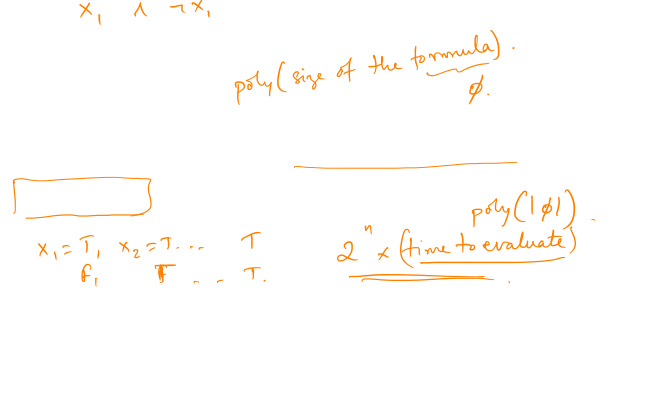 x₁ ∧ ¬x₁
poly(size of the formula).
φ.
poly(|φ|).
x₁ = T, x₂ = T... T
2ⁿ × (time to evaluate)
F, T ... T.